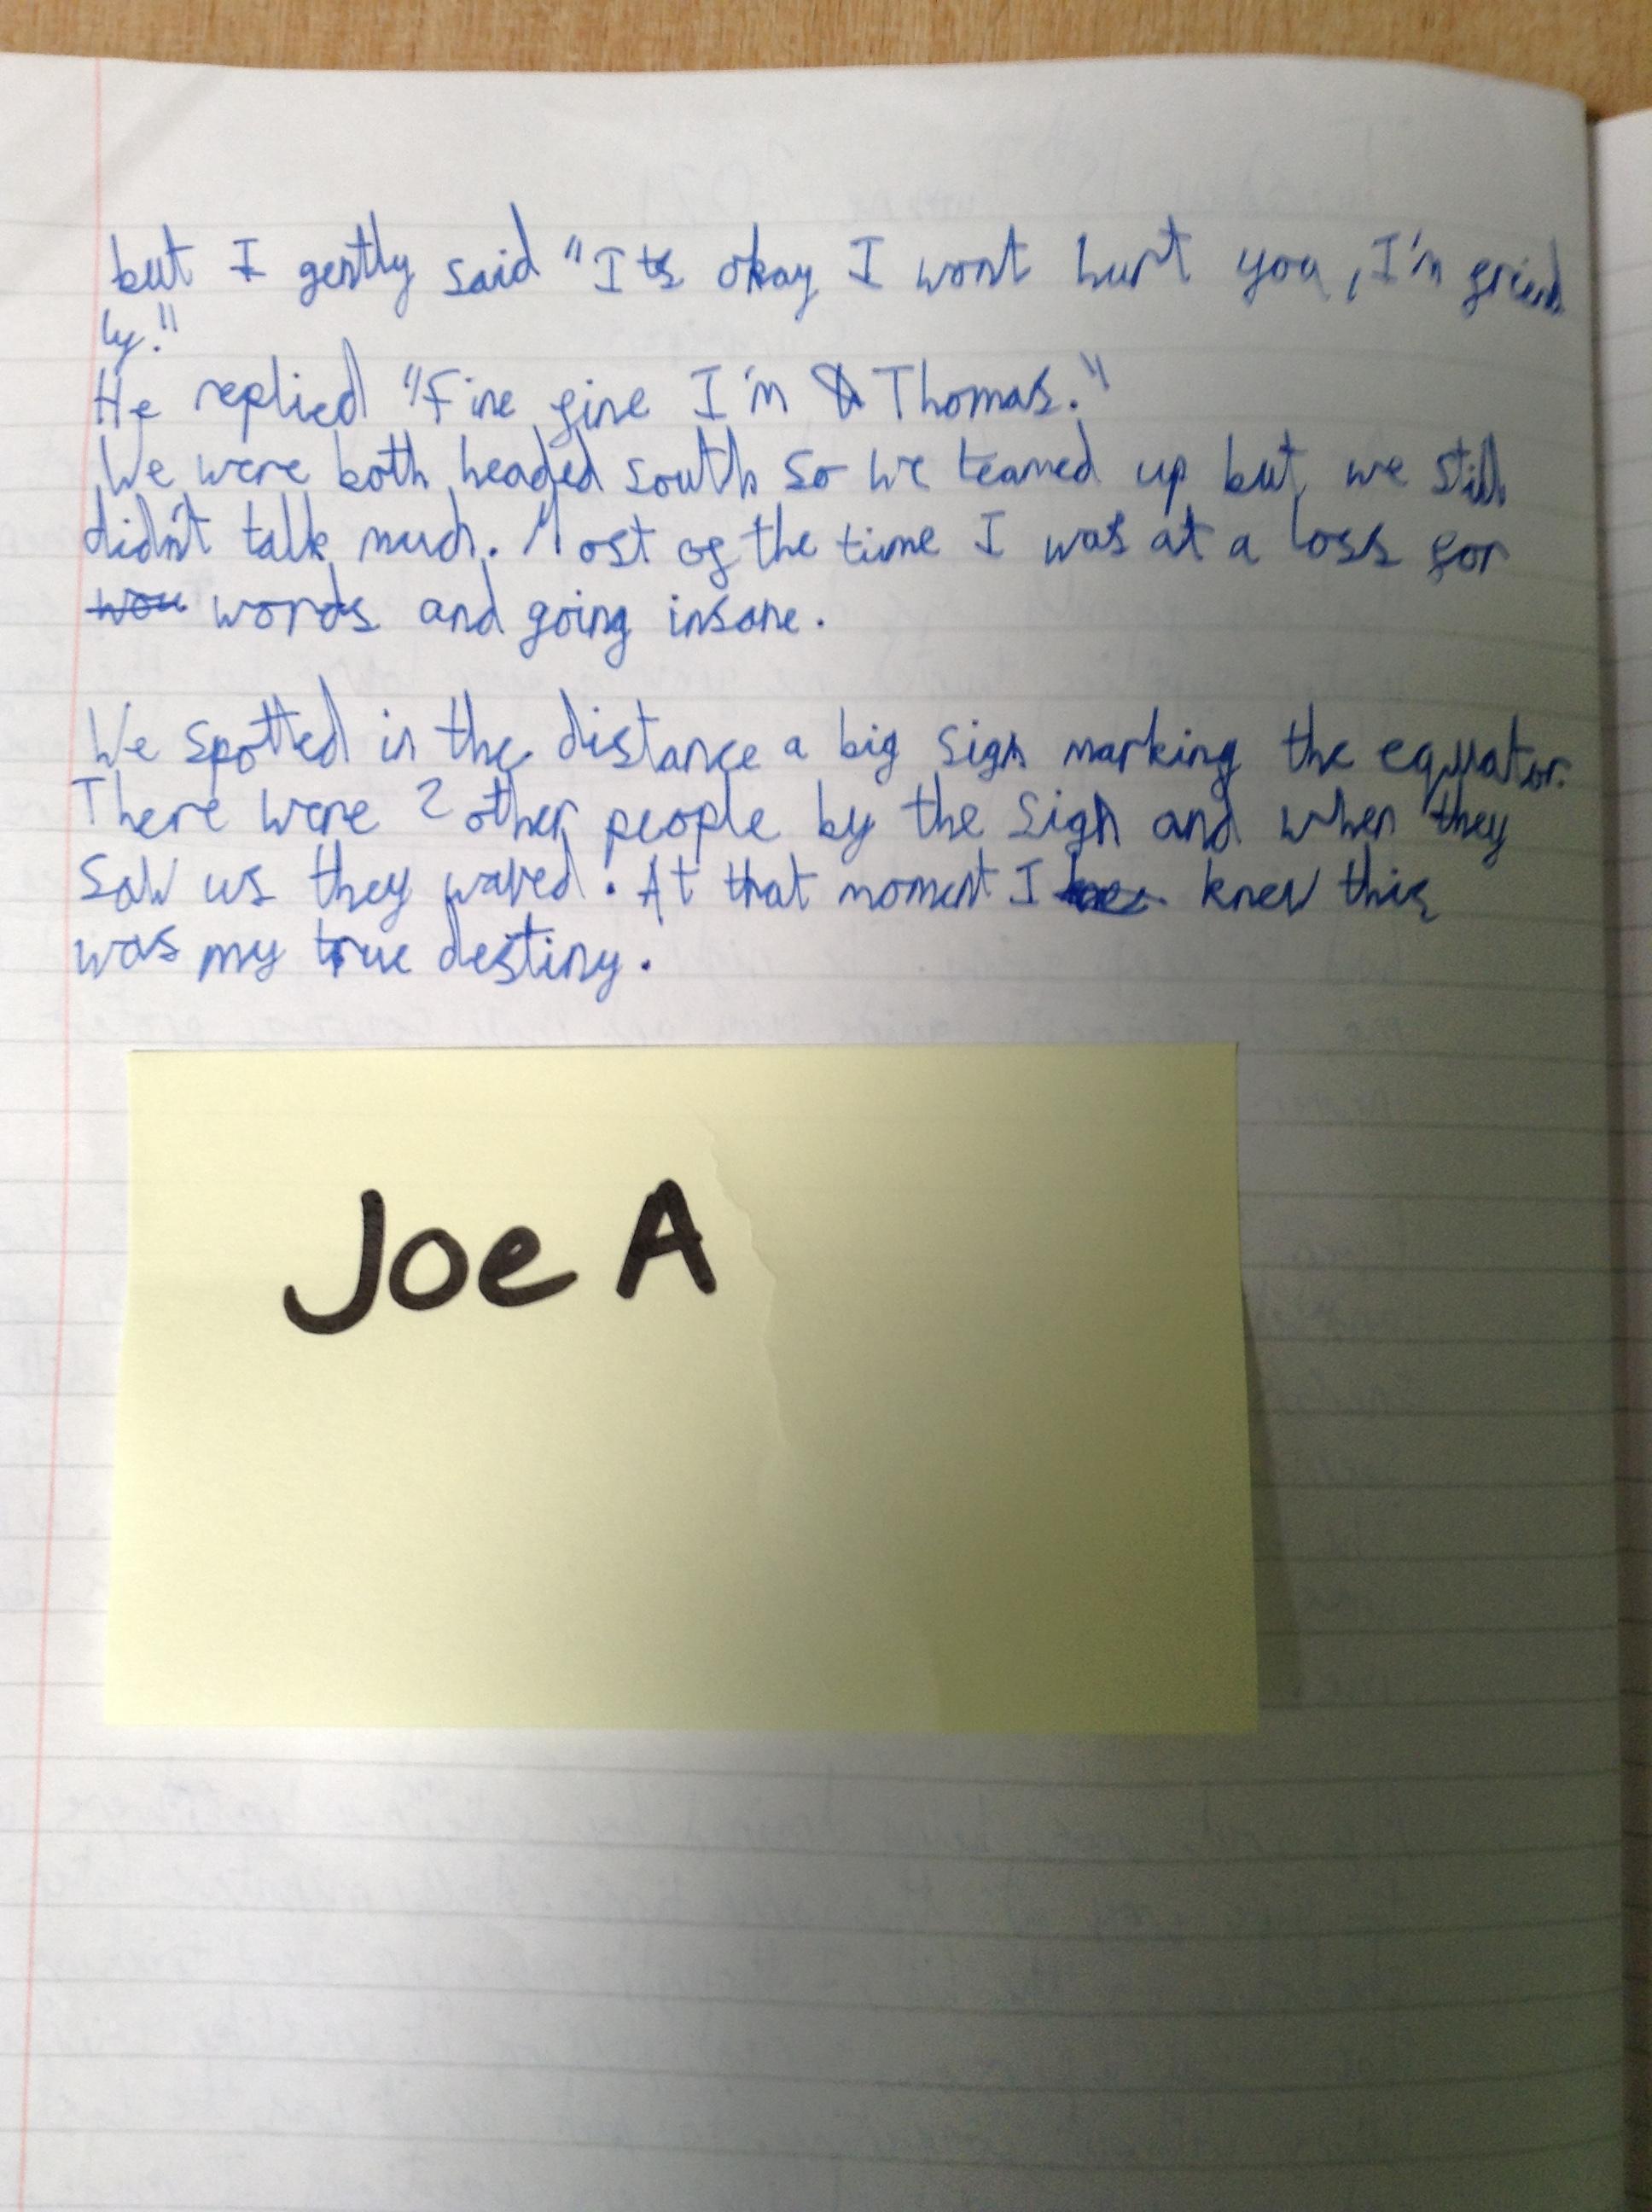 but I gently said "Its okay I wont hurt you, I'm friend
ly."
He replied "Fine fine I'm Thomas."
We were both headed south so we teamed up but we still
didn't talk much. Most of the time I was at a loss for
wou words and going insane.
We spotted in the distance a big sign marking the equator.
There were 2 other people by the sign and when they
saw us they waved. At that moment I knew this
was my true destiny.
Joe A